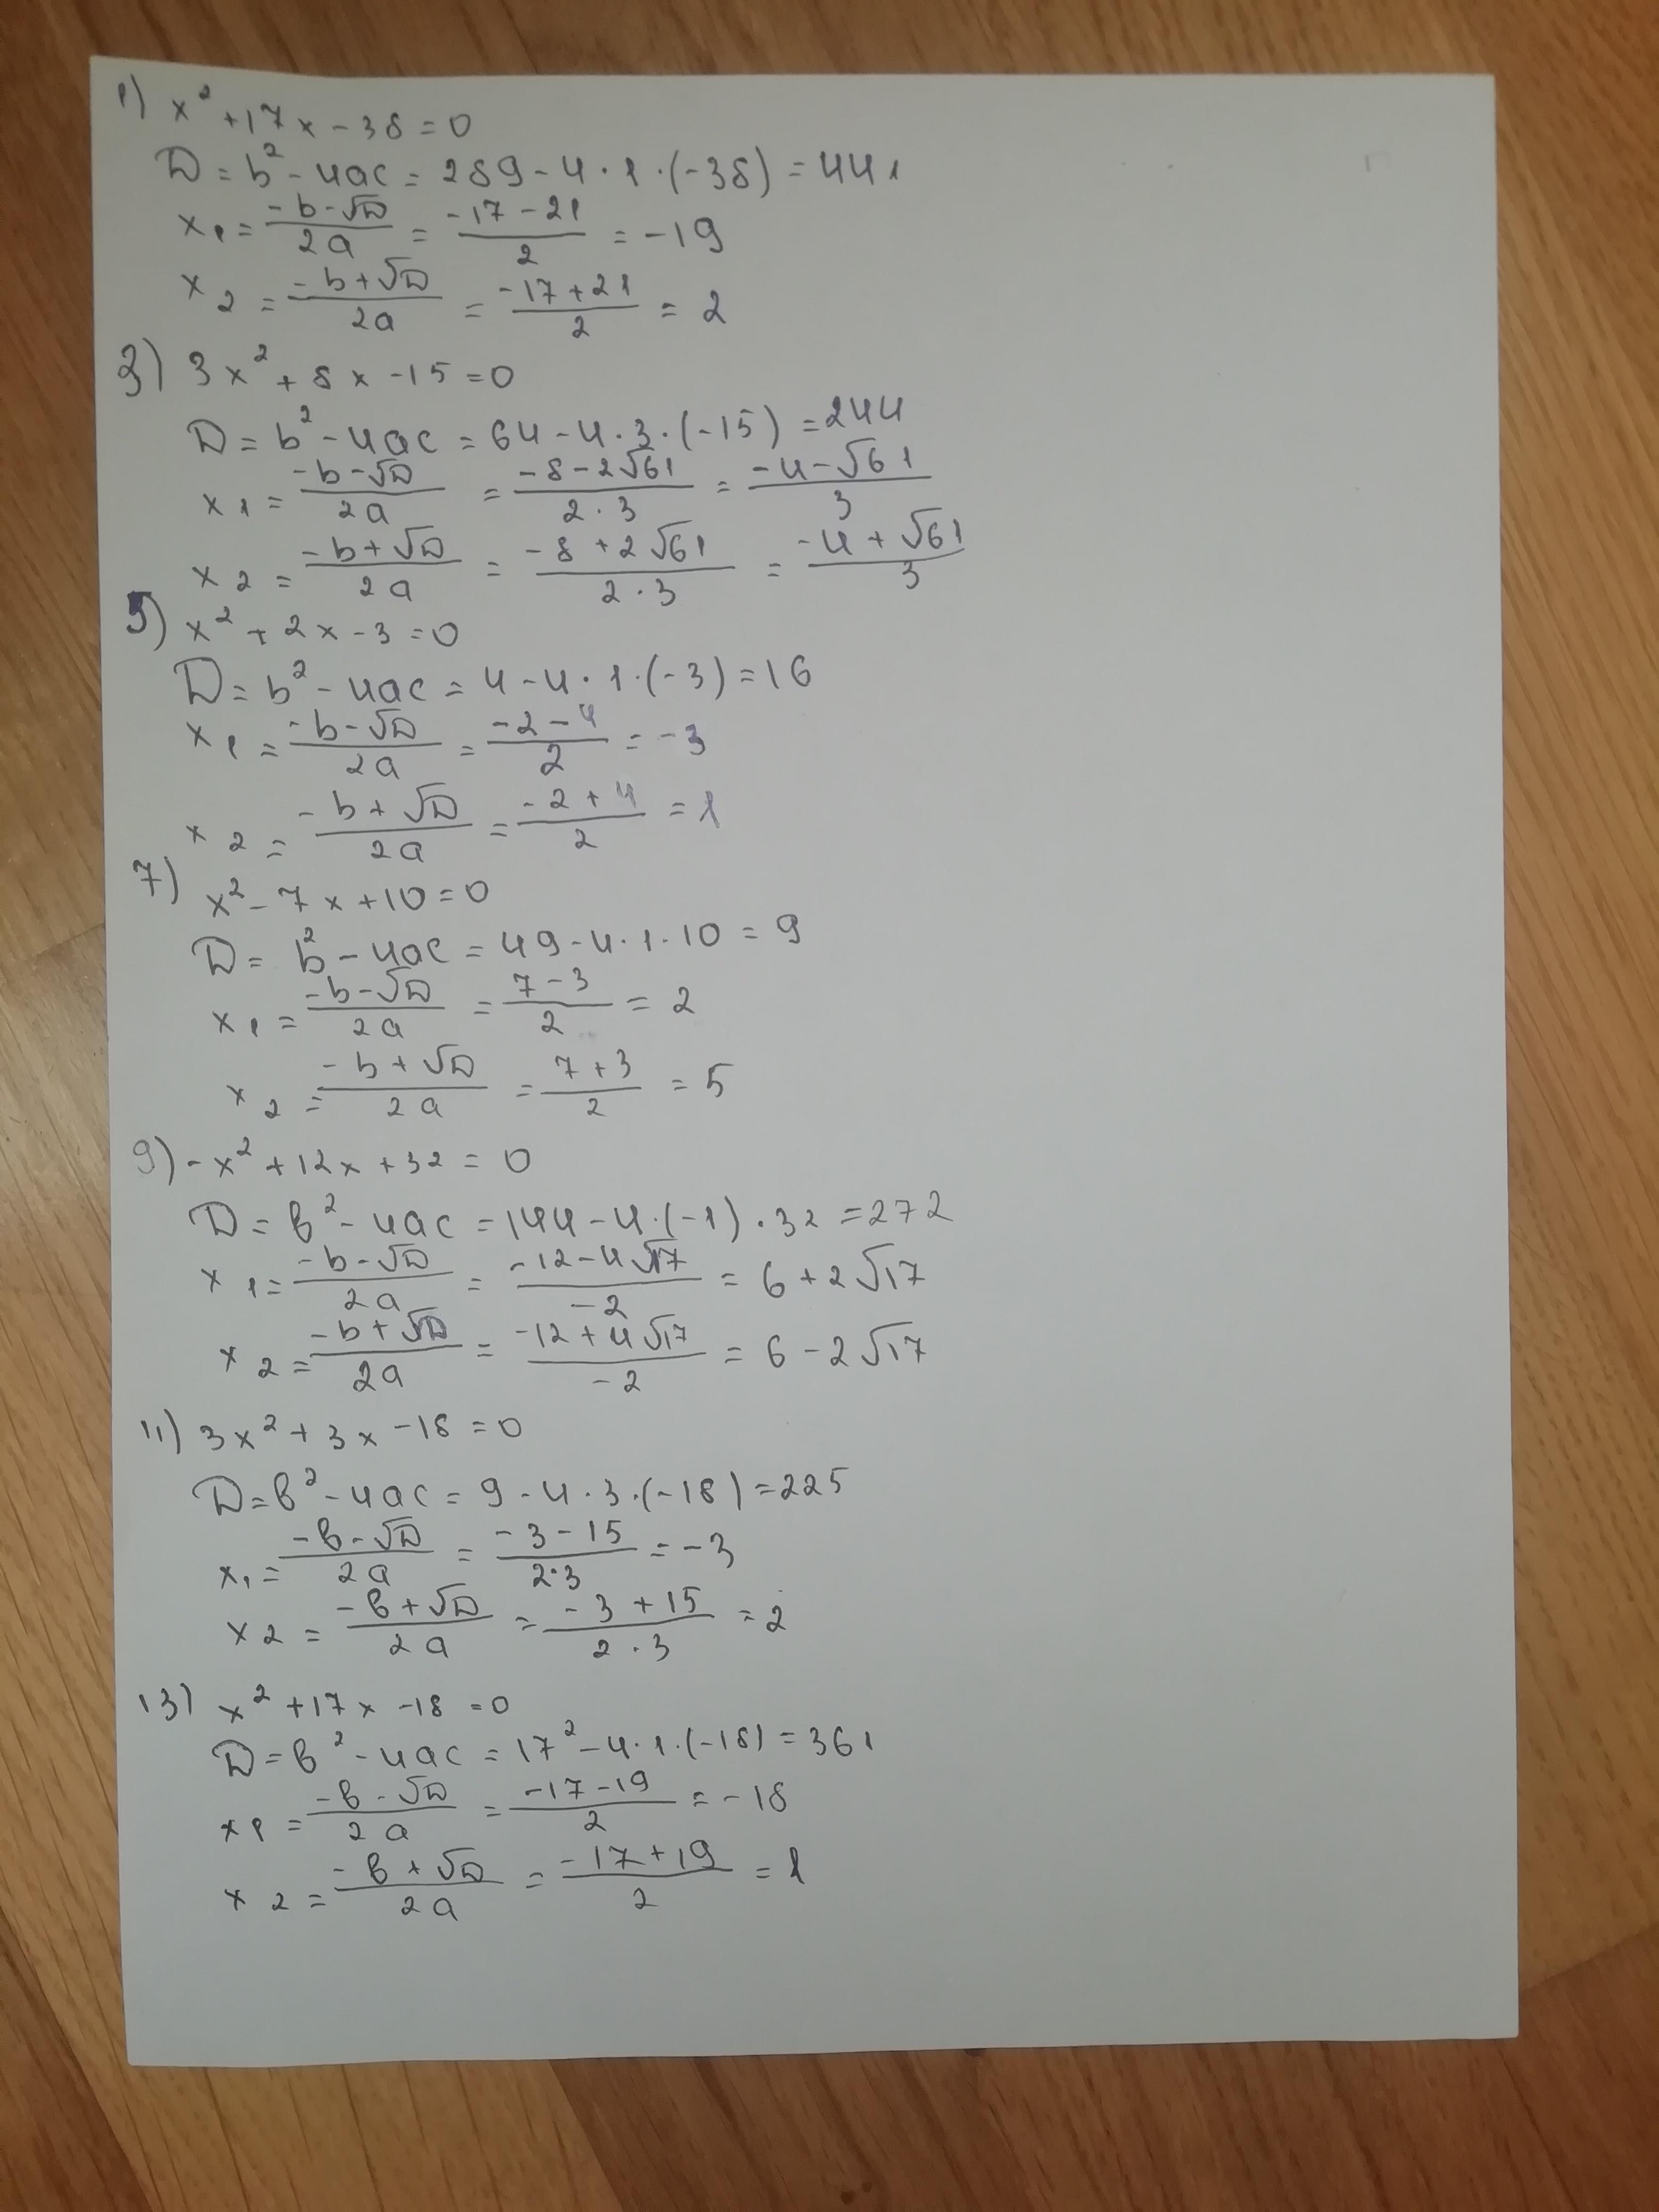 1) x² + 17x - 38 = 0
D = b² - 4ac = 289 - 4 · 1 · (-38) = 441
x₁ = (-b - √D)/(2a) = (-17 - 21)/2 = -19
x₂ = (-b + √D)/(2a) = (-17 + 21)/2 = 2
3) 3x² + 8x - 15 = 0
D = b² - 4ac = 64 - 4 · 3 · (-15) = 244
x₁ = (-b - √D)/(2a) = (-8 - 2√61)/(2 · 3) = (-4 - √61)/3
x₂ = (-b + √D)/(2a) = (-8 + 2√61)/(2 · 3) = (-4 + √61)/3
5) x² + 2x - 3 = 0
D = b² - 4ac = 4 - 4 · 1 · (-3) = 16
x₁ = (-b - √D)/(2a) = (-2 - 4)/2 = -3
x₂ = (-b + √D)/(2a) = (-2 + 4)/2 = 1
7) x² - 7x + 10 = 0
D = b² - 4ac = 49 - 4 · 1 · 10 = 9
x₁ = (-b - √D)/(2a) = (7 - 3)/2 = 2
x₂ = (-b + √D)/(2a) = (7 + 3)/2 = 5
9) -x² + 12x + 32 = 0
D = b² - 4ac = 144 - 4 · (-1) · 32 = 272
x₁ = (-b - √D)/(2a) = (-12 - 4√17)/(-2) = 6 + 2√17
x₂ = (-b + √D)/(2a) = (-12 + 4√17)/(-2) = 6 - 2√17
11) 3x² + 3x - 18 = 0
D = b² - 4ac = 9 - 4 · 3 · (-18) = 225
x₁ = (-b - √D)/(2a) = (-3 - 15)/(2·3) = -3
x₂ = (-b + √D)/(2a) = (-3 + 15)/(2 · 3) = 2
13) x² + 17x - 18 = 0
D = b² - 4ac = 17² - 4 · 1 · (-18) = 361
x₁ = (-b - √D)/(2a) = (-17 - 19)/2 = -18
x₂ = (-b + √D)/(2a) = (-17 + 19)/2 = 1